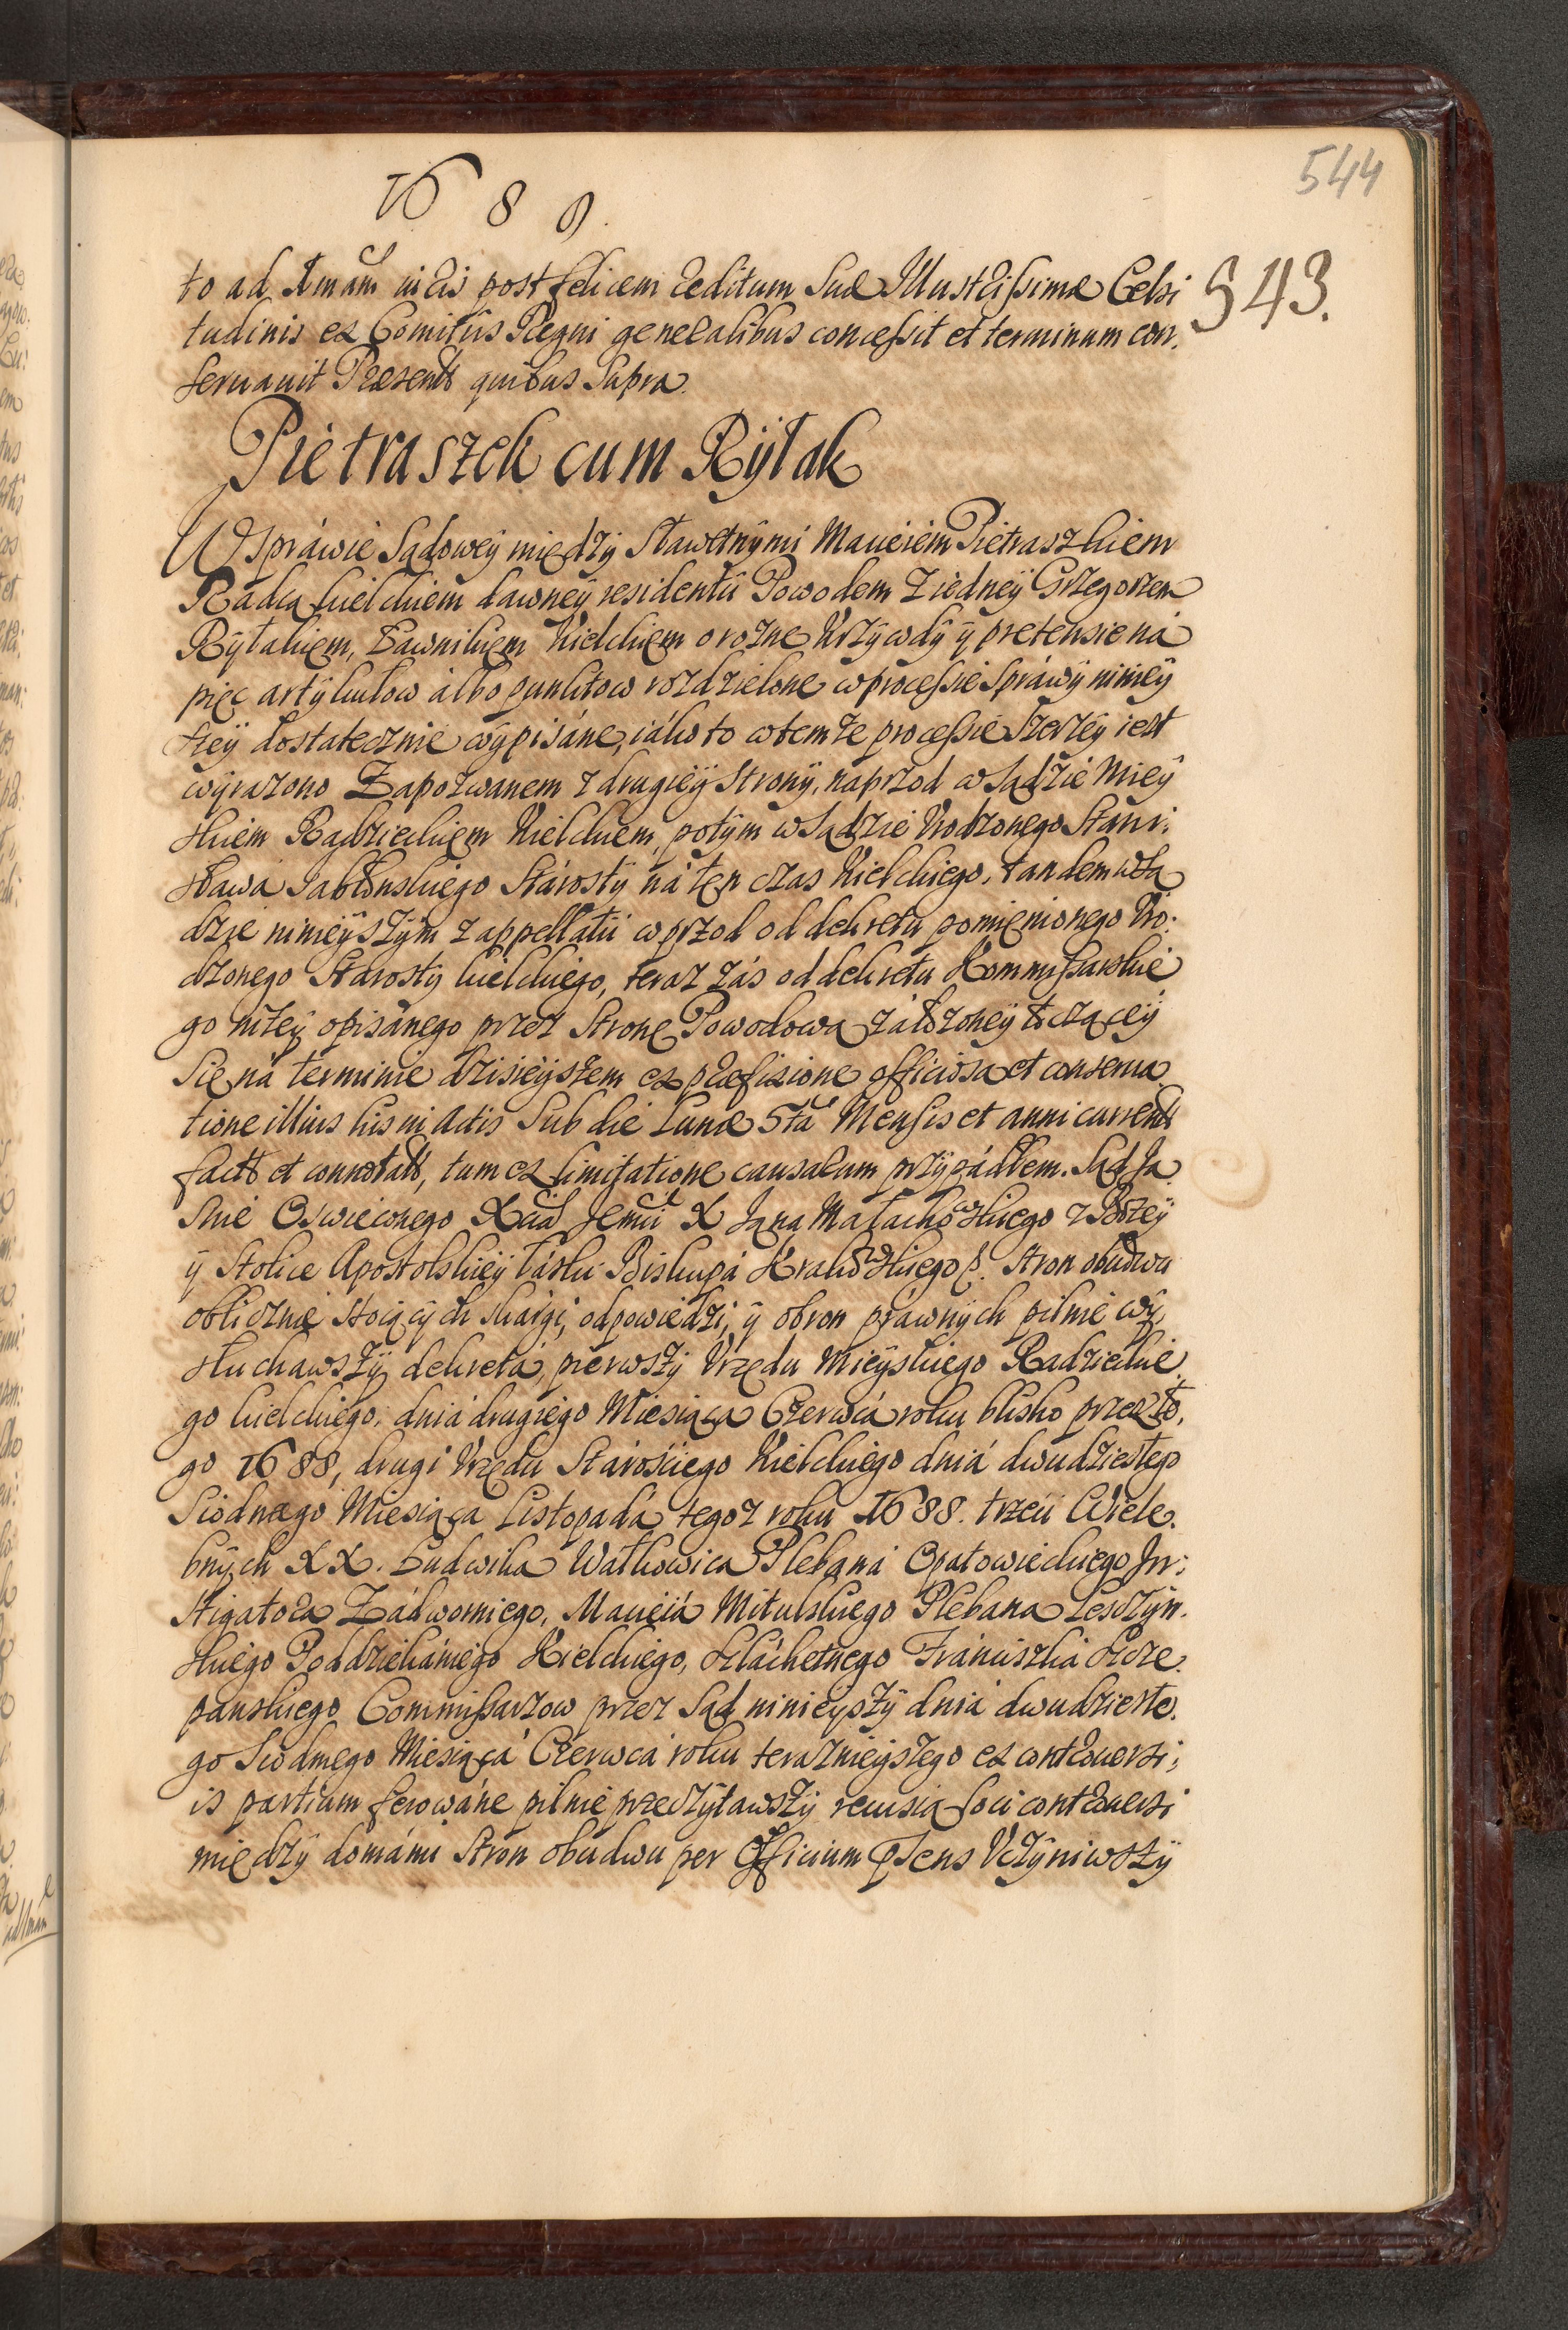 544
1689.
543.
to ad Imam iuris post felicem reditum Suæ Illustrissimæ Celsi
tudinis ex Comitiis Regni generalibus concessit et terminum con.
seruauit Præsent. quibus supra.
Pietraszek cum Rÿtak
W sprawie Sądoweÿ międzÿ Sławetnÿmi Macieiem Pietraszkiem
Radcą kielckiem dawneÿ residentii Powodem z iedneÿ Grzegorzem
Rÿtakiem, Ławnikiem Kielckiem o rożne krzÿwdÿ ÿ pretensie ná
pięc artÿkułow álbo punktow rozdzielone w processie sprawÿ niniey
szeÿ dostatecznie wÿpisáne, iáko to w temże processie szerzeÿ iest
wÿrażono Zapozwanem z drugieÿ Stronÿ, naprzod w sądzie Miey
skiem Radzieckiem Kielckiem, potÿm w Sądzie Vrodzonego Stani.
sława Jabłonskiego Stárostÿ ná ten czas Kielckiego, tandem w Są
dzie ninieÿszÿm z appellatii wprzod od dekretu pomienionego Vro.
dzonego Starosty kielckiego, teraz zás od dekretu Kommissarskie
go niżeÿ opisánego przez Stronę Powodową záłożoneÿ toczącey
Się ná terminie dzisieÿszem ex præfixione officiosa et conserua
tione illius his in Actis Sub die Lunæ 5ta Mensis et anni current.
fact. et connotat., tum ex limitatione causarum przÿpadłem. Sąd Ja
snie Oswieconego Xcia Jemci X Jana Małachowskiego z Bożeÿ
ÿ Stolice Apostolskieÿ łáski Biskupá Krakowskiego p. Stron obudwu
oblicznie stoiącÿch skárgi, odpowiedzi, ÿ obron práwnÿch pilnie wÿ
słuchawszÿ dekretá, pierwszÿ Vrzędu Mieÿskiego Radzieckie
go kielckiego, dniá drugiego Miesiąca Czerwcá roku blisko przeszło.
go 1688, drugi Vrzędu Stároskiego Kielckiego dniá dwudziestego
Siodmego Miesiąca Listopadá tegoż roku 1688. trzeci Wiele.
bnÿch XX. Ludwika Watkowica Plebaná Opatowieckiego In.
stigatora Zádwornego, Macieiá Mitulskiego Plebana Leszczÿn.
skiego Poddziekániego Kielckiego, szláchetnego Fránciszká Scze.
panskiego Commissarzow przez Sąd ninieÿszÿ dniá dwudzieste.
go Siodmego Miesiącá Czerwcá roku teraznieÿszego ex controuersi.
is partium ferowáne pilnie przeczÿtawszÿ reuisią loci controuersi
międzÿ domámi Stron obudwu per Officium præsens Vczÿniwszÿ